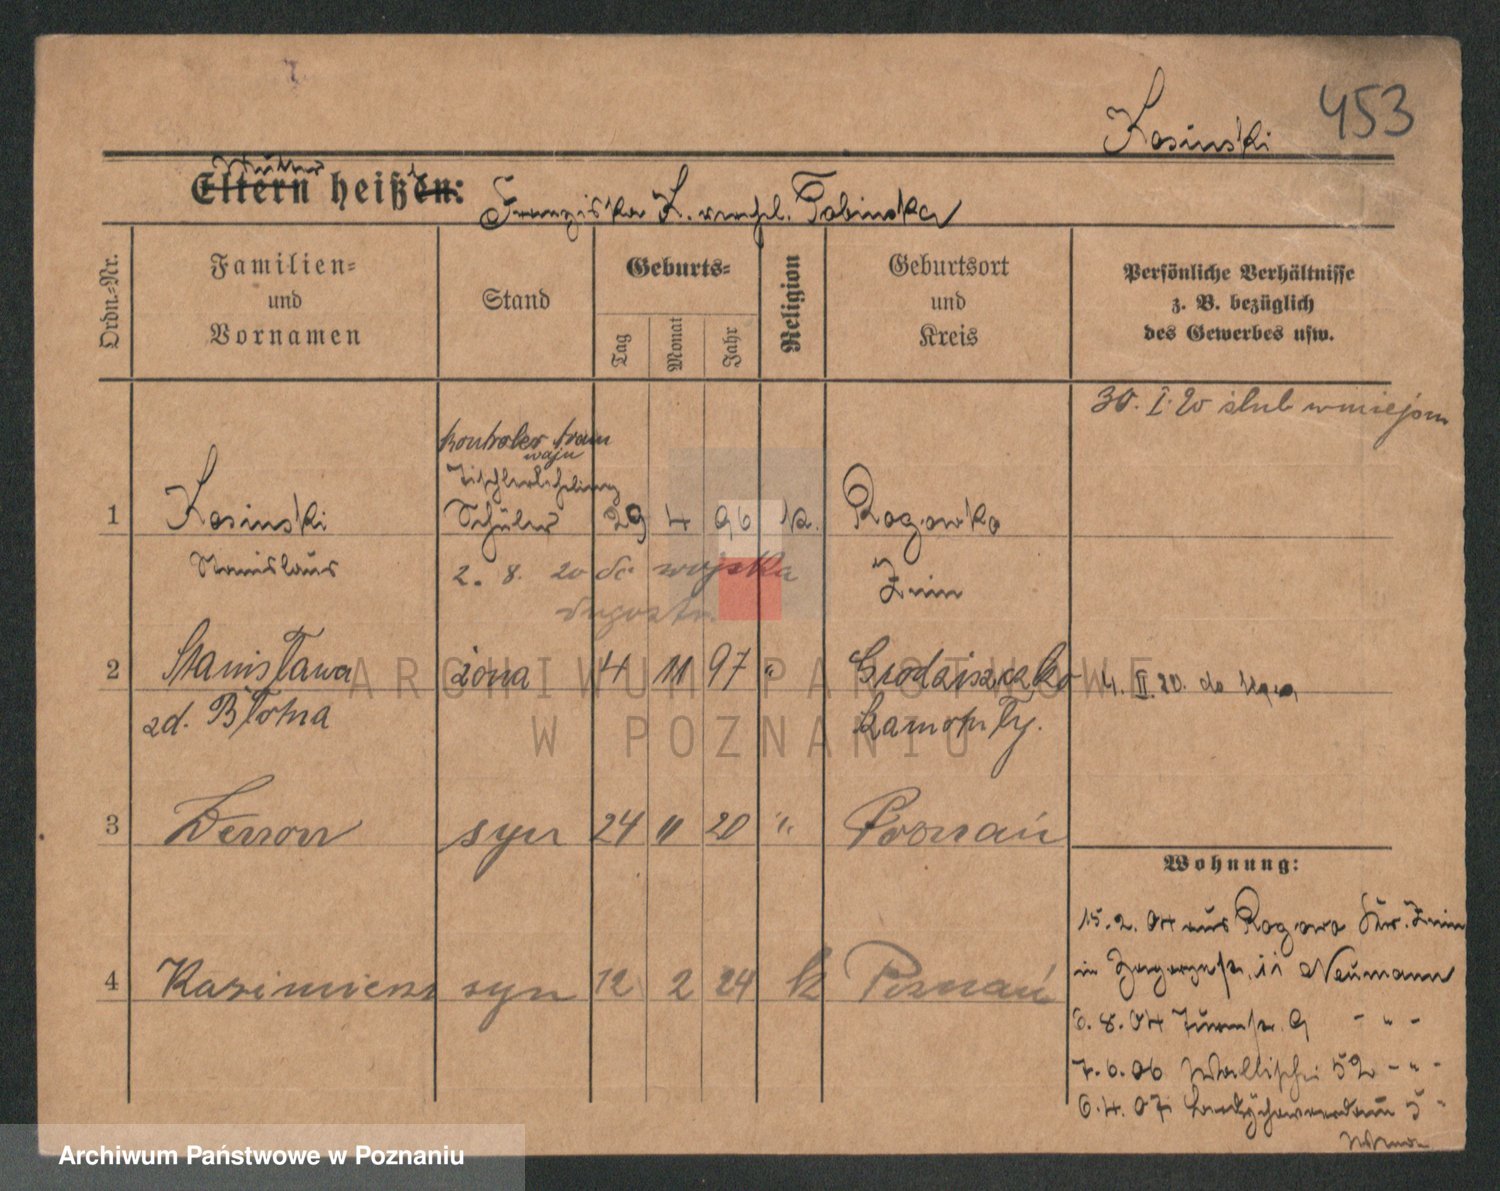 453
Kosinski
Mutter
Eltern heißen:
Franziska K. verehl. Tabinska
Ordn.-Nr.
Familien-
und
Vornamen
Stand
Geburts-
Tag
Monat
Jahr
Religion
Geburtsort
und
Kreis
Persönliche Verhältnisse
z. B. bezüglich
des Gewerbes usw.
30. I. 20 ślub w miejscu
kontroler tram
waju
Tischlerlehrling
1 Kosinski Schüler 29 4 96 k. Rogowko
Stanislaus 2. 8. 20 do wojska Znin
2 Stanisława żona 4 11 97 " Grodziszczko 4. II 20. do
zd. Błotna Szamotuły.
3 Zenon syn 24 11 20 " Poznań
Wohnung:
15. 2. 04 aus Rogowo Kr. Znin
in 11 Neumann
4 Kazimierz syn 12 2 24 k Poznań
6. 8. 04 Turmstr. 9 - " -
7. 6. 06 Wallischei 52 - " -
6. 4. 07 5 "
ARCHIWUM PAŃSTWOWE
W POZNANIU
Archiwum Państwowe w Poznaniu